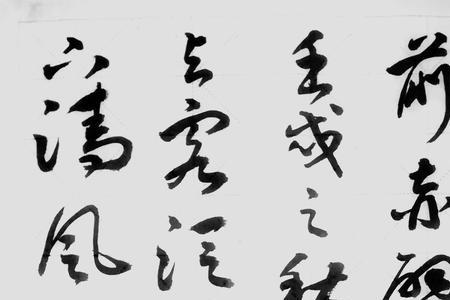 前赤壁
壬戌之秋
与客泛
下清風